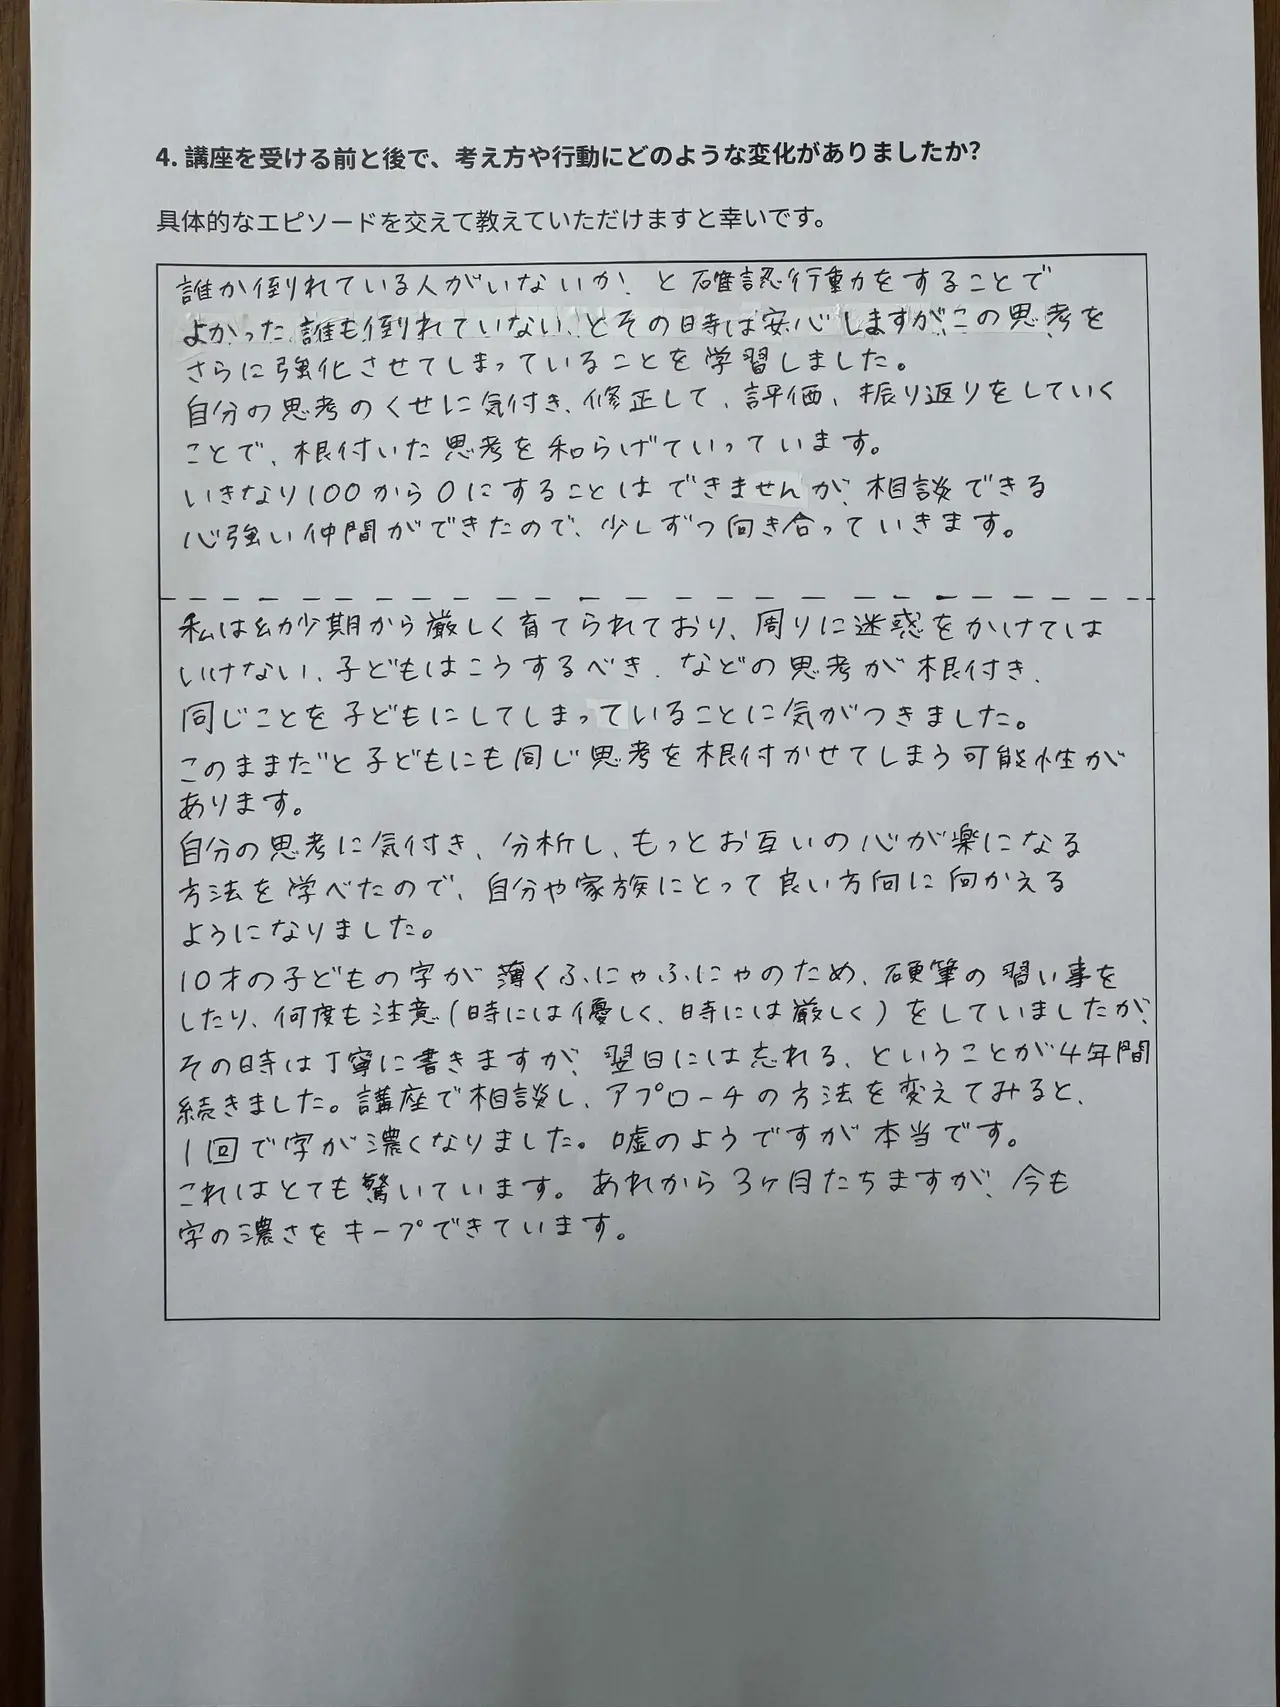 4. 講座を受ける前と後で、考え方や行動にどのような変化がありましたか?
具体的なエピソードを交えて教えていただけますと幸いです。
誰か倒れている人がいないか、と確認行動をすることで
よかった、誰も倒れていない、とその時は安心しますが、この思考を
さらに強化させてしまっていることを学習しました。
自分の思考のくせに気付き、修正して、評価、振り返りをしていく
ことで、根付いた思考を和らげていっています。
いきなり100から0にすることはできませんが、相談できる
心強い仲間ができたので、少しずつ向き合っていきます。
私は幼少期から厳しく育てられており、周りに迷惑をかけては
いけない、子どもはこうするべき、などの思考が根付き、
同じことを子どもにしてしまっていることに気がつきました。
このままだと子どもにも同じ思考を根付かせてしまう可能性が
あります。
自分の思考に気付き、分析し、もっとお互いの心が楽になる
方法を学べたので、自分や家族にとって良い方向に向かえる
ようになりました。
10才の子どもの字が薄くふにゃふにゃのため、硬筆の習い事を
したり、何度も注意(時には優しく、時には厳しく)をしていましたが、
その時は丁寧に書きますが、翌日には忘れる、ということが4年間
続きました。講座で相談し、アプローチの方法を変えてみると、
1回で字が濃くなりました。嘘のようですが本当です。
これはとても驚いています。あれから3ヶ月たちますが、今も
字の濃さをキープできています。